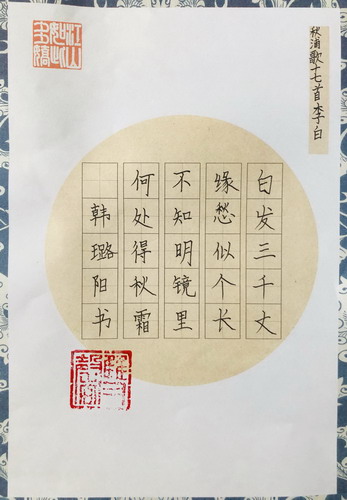 秋浦歌十七首李白
白发三千丈
缘愁似个长
不知明镜里
何处得秋霜
韩璐阳书
江山如此多娇